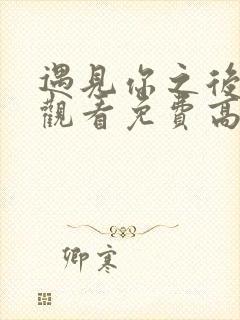 遇見你之後
觀看免費高
卿寒